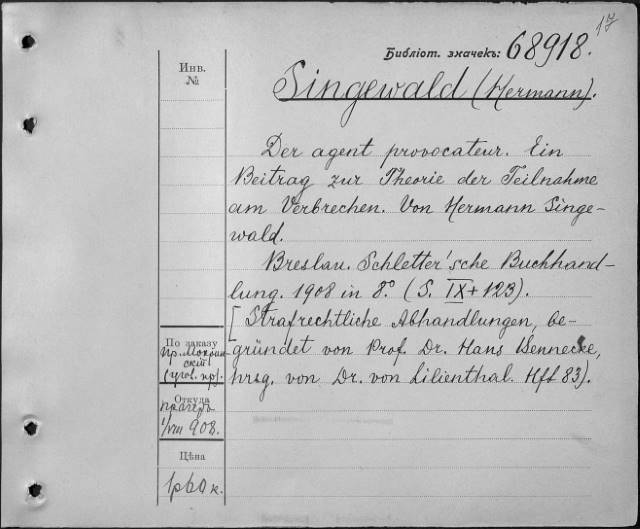 17
Библіот. значекъ: 68918.
Singewald (Hermann).
Инв.
№
Der agent provocateur. Ein
Beitrag zur Theorie der Teilnahme
am Verbrechen. Von Hermann Singe-
wald.
Breslau. Schletter'sche Buchhand-
lung. 1908 in 8º. (S. IX+123).
[Strafrechtliche Abhandlungen, be-
gründet von Prof. Dr. Hans Bennecke,
hrsg. von Dr. von Lilienthal. Hft 83).
По заказу
пр. Мокрин-
скій
(угол. пр).
Откуда
Прагеръ
1/VIII 908.
Цѣна
1р60к.